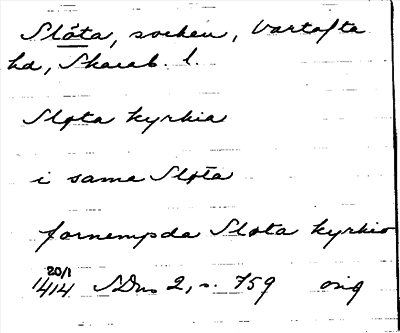 Slöta, socken, Vartofta
hd, Skarab. l.
Sløta kyrkia
i same Sløta
fornempda Sløta kyrkio
20/1
1414 SDns 2, s. 759 orig